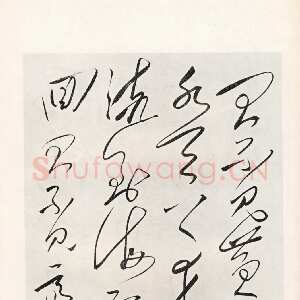 君不见黄
水天上来
流到海不
回君不见高
Shufawang.CN